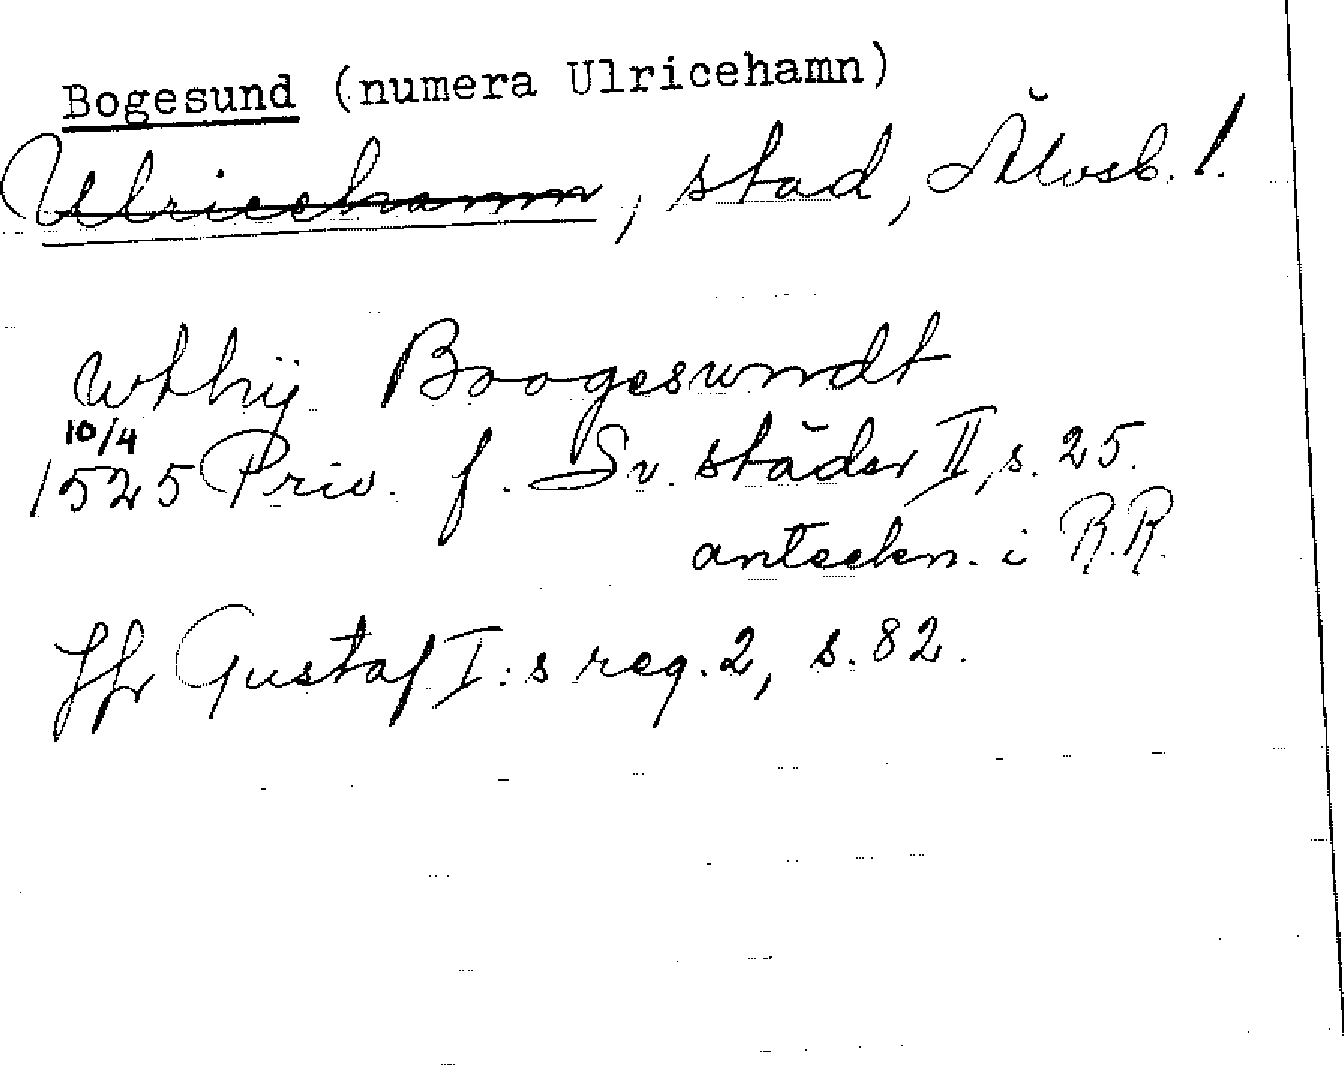 Bogesund (numera Ulricehamn)
Ulricehamn, stad, Älvsb. l.
wthij Boogesundt
10/4
1525 Priv. f. Sv. städer II, s. 25.
anteckn. i R.R.
Jfr Gustaf I:s reg. 2, s. 82.